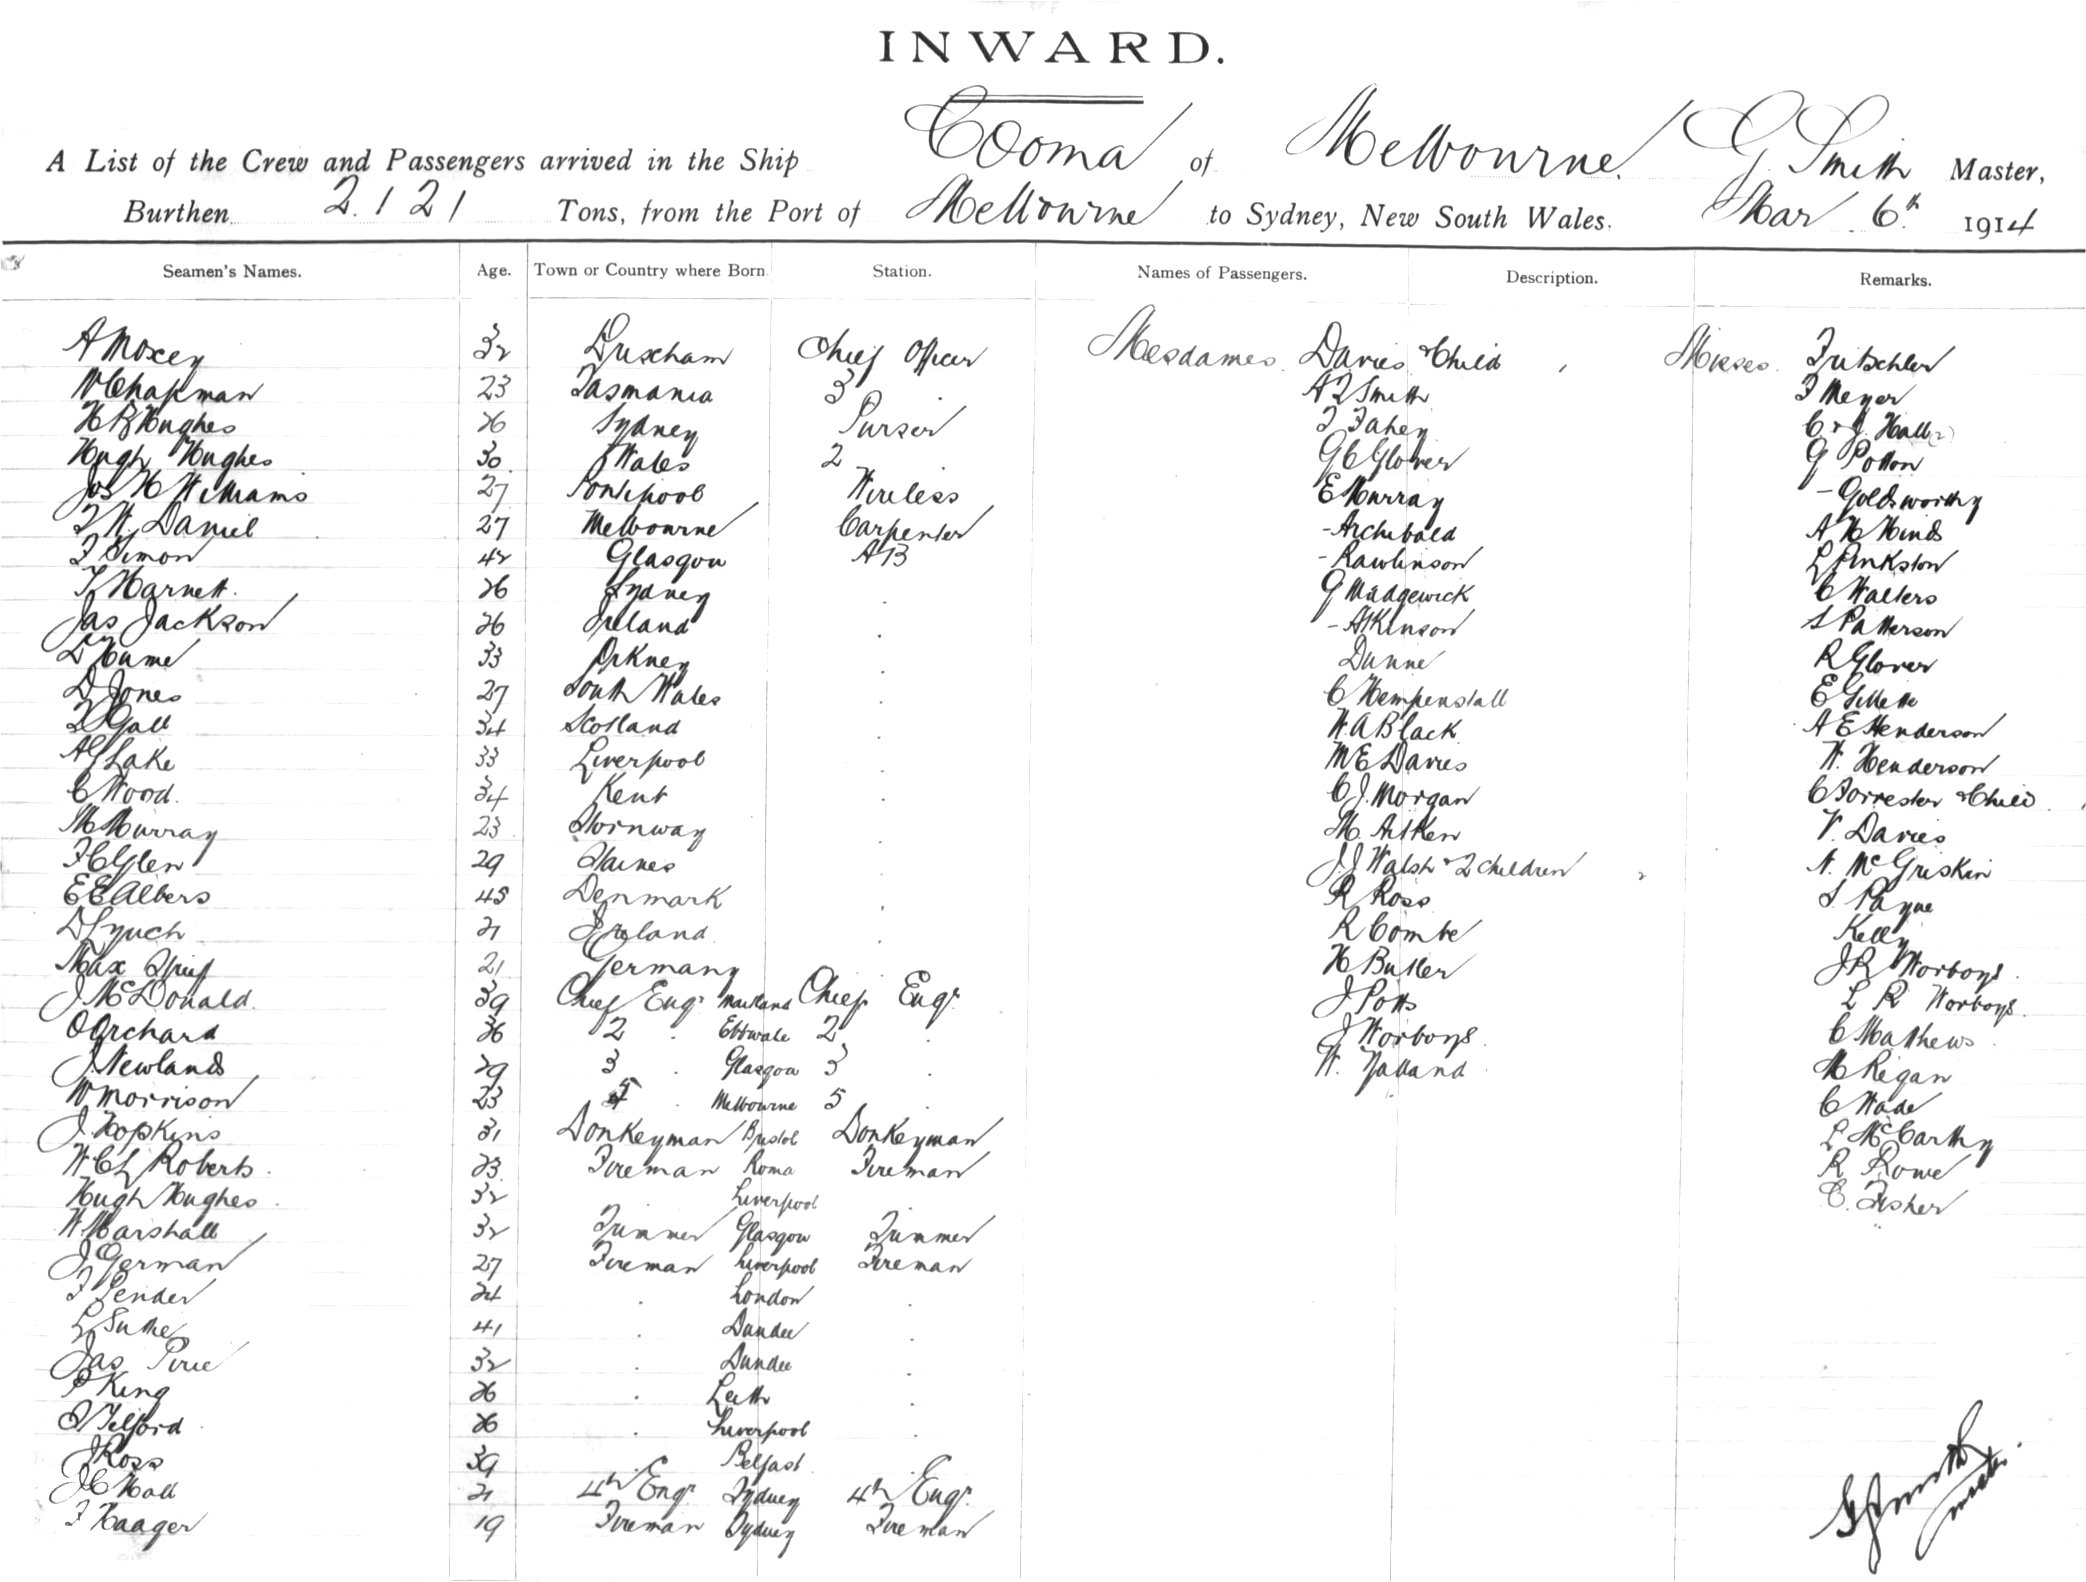 INWARD.
A List of the Crew and Passengers arrived in the Ship Cooma of Melbourne. G Smith Master,
Burthen 2.121 Tons, from the Port of Melbourne to Sydney, New South Wales. Mar 6th 1914
Seamen's Names. Age. Town or Country where Born Station. Names of Passengers. Description. Remarks.
A Moxey 32 Chief Officer Mesdames. Davies & Child , Misses. Fritschler
W Chapman 23 Tasmania 3 A F Smith F Meyer
H B Hughes 26 Sydney Purser F Fahey C & J. Hall (2)
Hugh Hughes 30 Wales 2 G C Glover G Potton
Jos H Williams 27 Pontipool Wireless E Murray - Goldsworthy
F W. Daniel 27 Melbourne Carpenter - Archibald A H Hinds
F Simon 42 Glasgow AB - Rawlinson L Pinkston
T Harnett. 26 Sydney . G Mudgewick C Walters
Jas Jackson 26 Ireland . - Atkinson S Patterson
D Hume 33 Orkney . Dunne R Glover
D Jones 27 South Wales . C Hempenstall E Gillette
D Gall 34 Scotland . W. A Black A E Henderson
A G Lake 33 Liverpool . M E Davies W. Henderson
C Wood. 34 Kent . C J. Morgan C Forrester & Child
M Murray 23 Stornway . M. Aitken V. Davies
F C Glen 29 . J. J Walsh & 2 children N. McGriskin
E E Albers 45 Denmark . R Ross S Payne
D Lynch 21 Ireland . R Combe Kelly
Max 21 Germany H Butler J R Worboys.
J McDonald. 39 Chief Engr Maitland Chief Engr. J Potts L R Worboys.
O Orchard 36 2 . Ebbwale 2 . J Worboys. C Mathews
J Newlands 29 3 . Glasgow 3 . W. Yalland M Regan
W Morrison 23 5 . Melbourne 5 . C Wade
J. Hopkins 31 Donkeyman Bristol Donkeyman L McCarthy
W C L Roberts. 23 Fireman Roma Fireman R Rowe
Hugh Hughes. 32 Liverpool C. Fisher
W. Marshall 32 Trimmer Glasgow Trimmer
J German 27 Fireman Liverpool Fireman
F Pender 24 . London .
L Suttie 41 . Dundee .
Jas Pirie 32 . Dundee .
P King 26 . Leith .
J Telford 26 . Liverpool .
J Ross 39 . Belfast .
J C Hall 21 4th Engr Sydney 4th Engr.
F Haager 19 Fireman Sydney Fireman
G Smith
Master